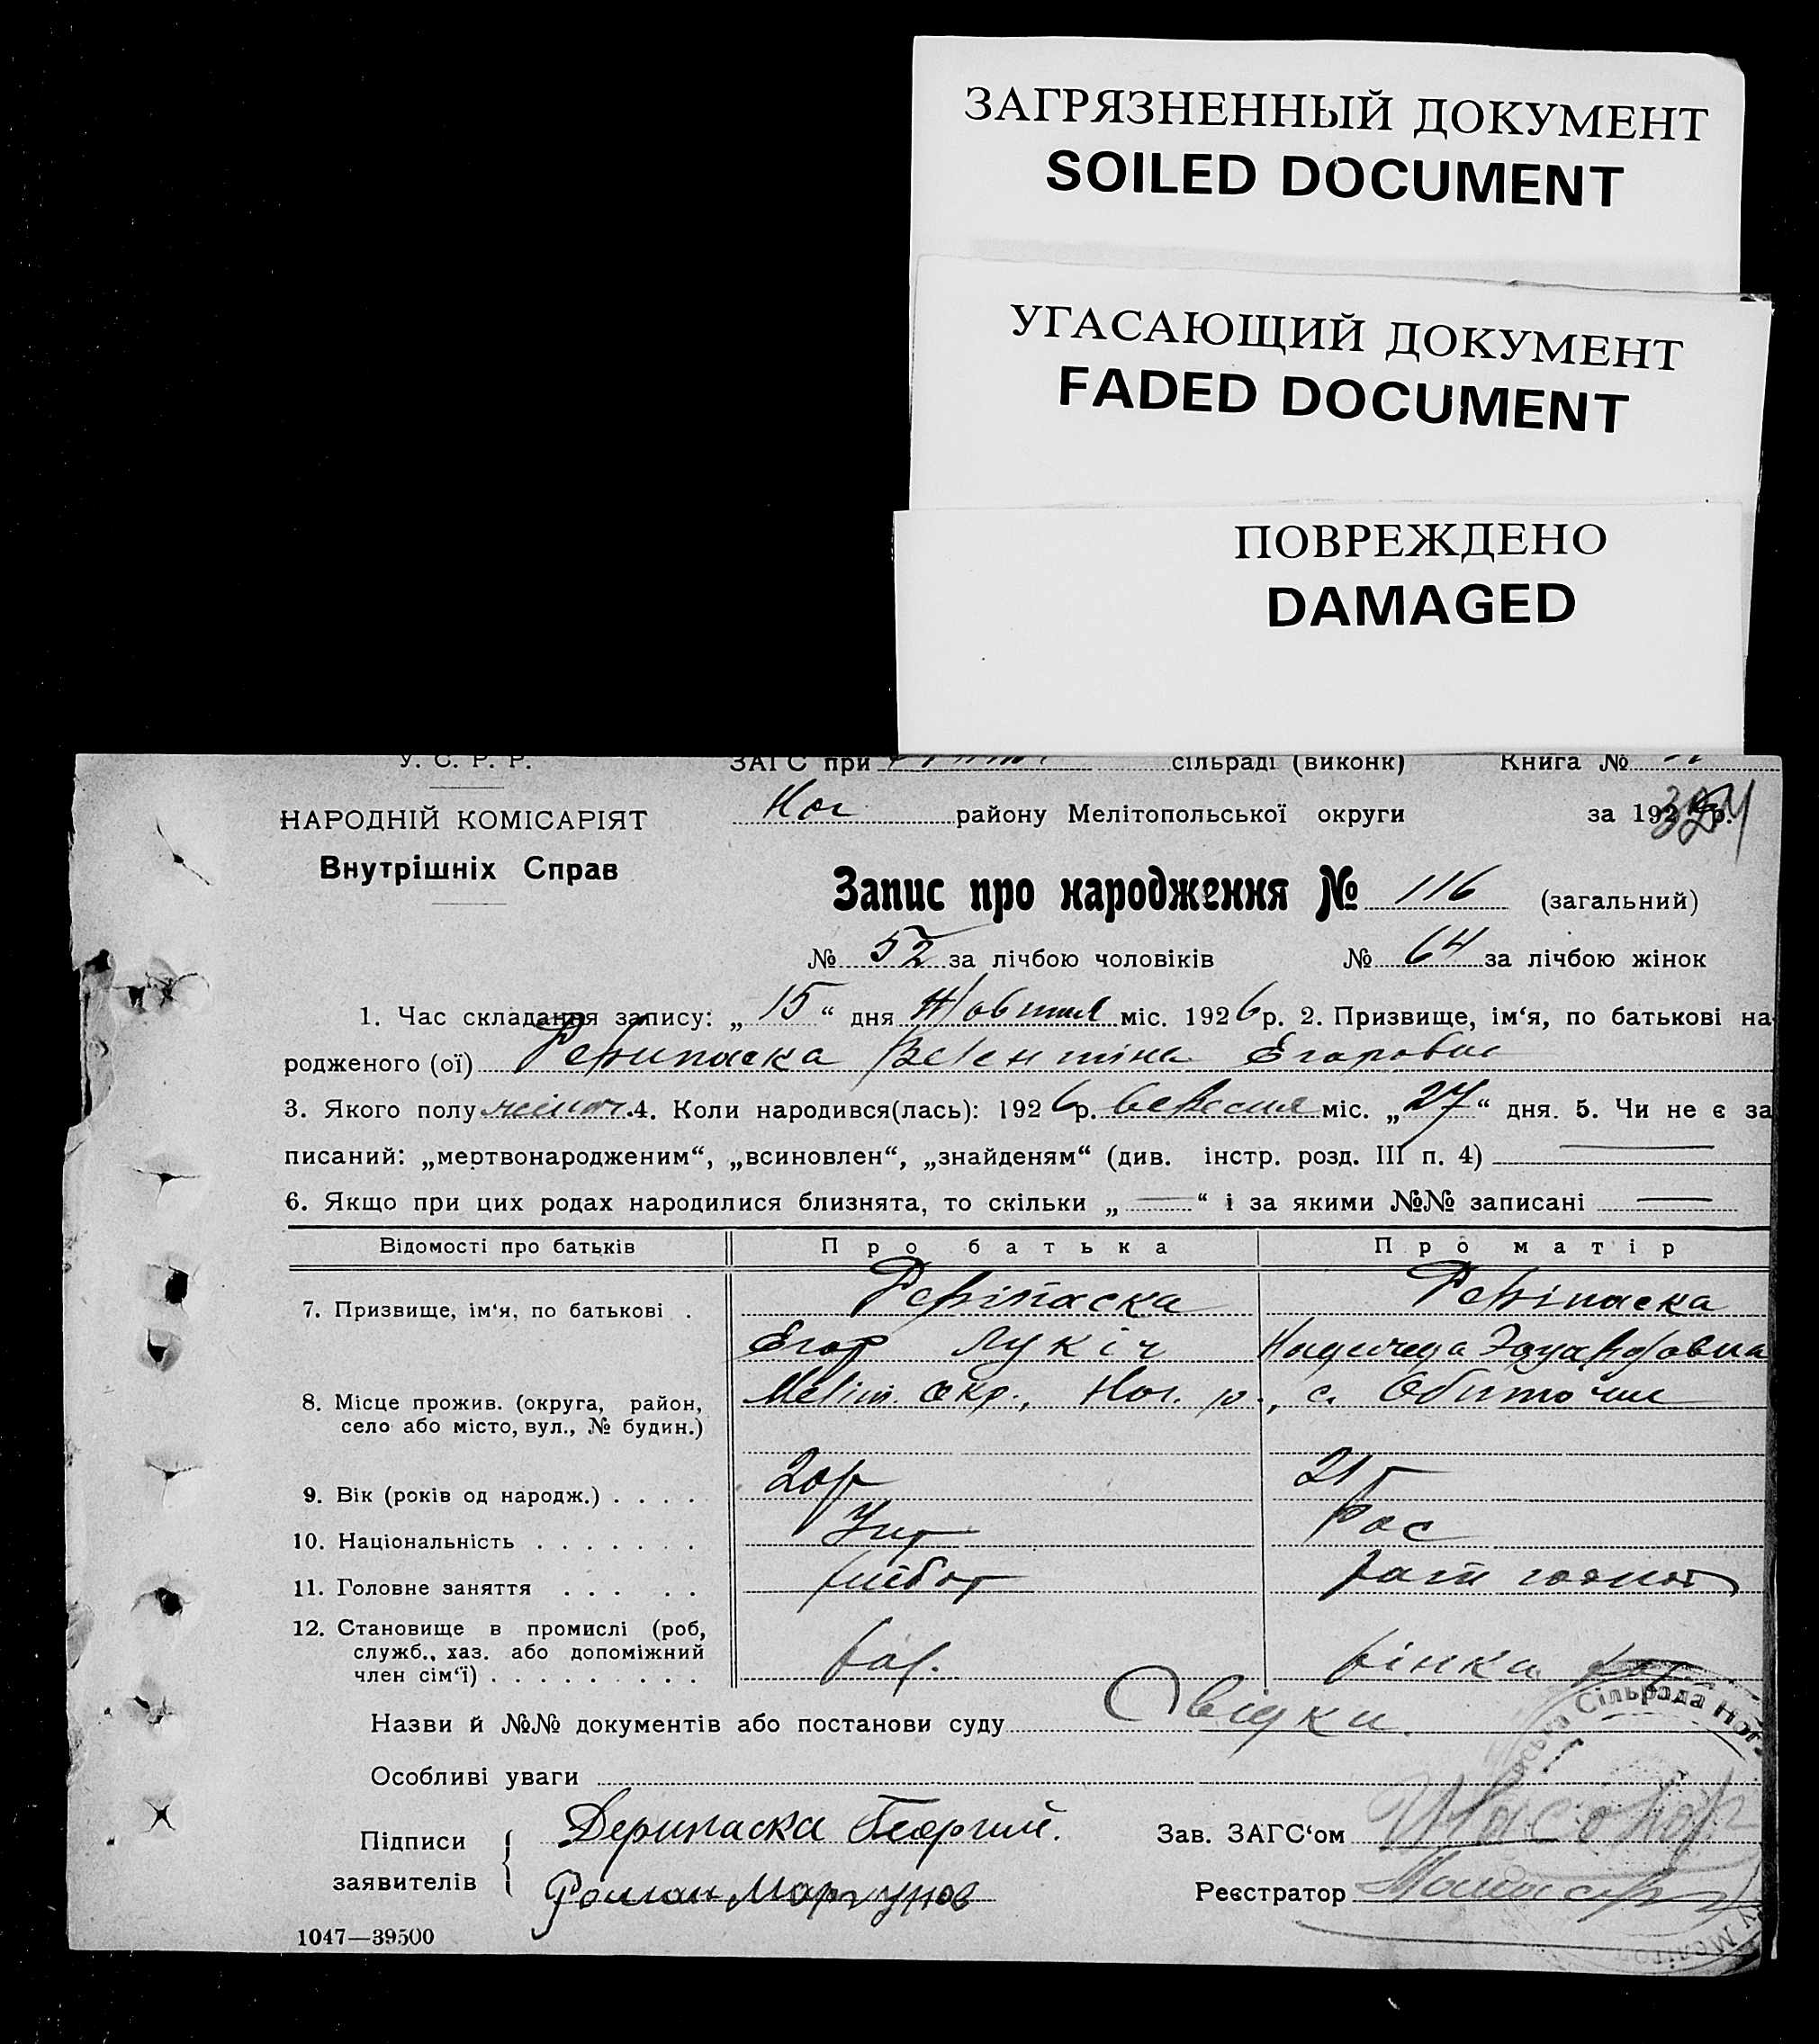 ЗАГРЯЗНЕННЫЙ ДОКУМЕНТ
SOILED DOCUMENT
УГАСАЮЩИЙ ДОКУМЕНТ
FADED DOCUMENT
ПОВРЕЖДЕНО
DAMAGED
У. С. Р. Р. ЗАГС при сільраді (виконк) Книга №
НАРОДНІЙ КОМІСАРІЯТ Ног району Мелітопольської округи за 192 р. 324
Внутрішніх Справ
Запис про народження № 116 (загальний)
№ 52 за лічбою чоловіків № 64 за лічбою жінок
1. Час складання запису: „ 15 “ дня Жовтня міс. 1926 р. 2. Призвище, ім‘я, по батькові на-
родженого (ої) Деріпаска Валентіна Егоровна
3. Якого полу жіноч. 4. Коли народився(лась): 1926 р. вересня міс. „ 27 “ дня. 5. Чи не є за
писаний: „мертвонародженим“, „всиновлен“, „знайденям“ (див. інстр. розд. III п. 4) —
6. Якщо при цих родах народилися близнята, то скільки „ — “ і за якими №№ записані —
Відомості про батьків Про батька Про матір
7. Призвище, ім‘я, по батькові . Деріпаска Деріпаска
Егор Лукіч Надежда Эдуардовна
8. Місце прожив. (округа, район, Меліт. окр., Ног. р., с. Обиточне
село або місто, вул., № будин.)
9. Вік (років од народж.) . . . . 20 р 21 р
10. Національність . . . . . . . Укр Рос
11. Головне заняття . . . . . хлібор хат
12. Становище в промислі (роб,
служб., хаз. або допоміжний
член сім‘ї) . . . . . . . . . хаз. жінка
Назви й №№ документів або постанови суду Свідки.
Сільрада Ног
Особливі уваги
Підписи Дерипаска Георгий. Зав. ЗАГС‘ом
заявителів Роман Моргунов Реєстратор
1047—39500